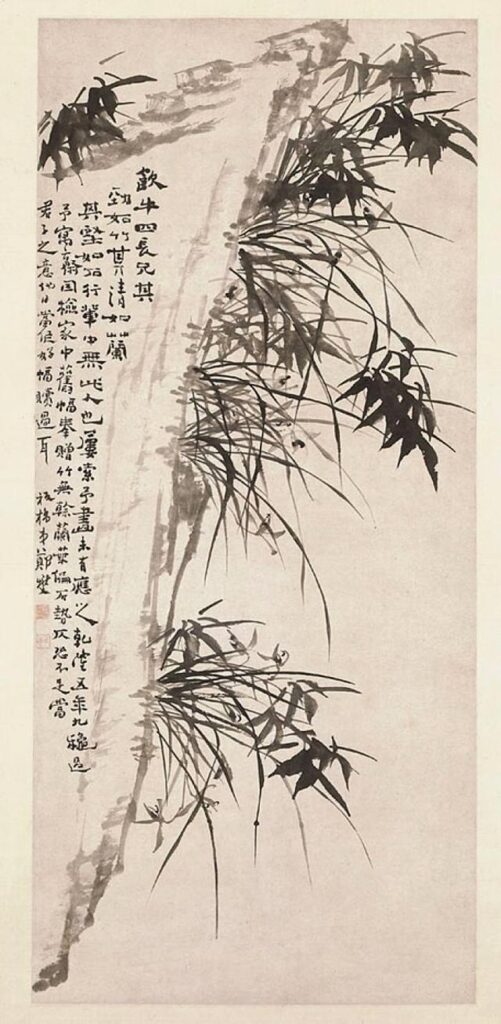 牛四長兄其
勁如竹其清如蘭
其堅如石行輩中無此人也屢索予畫未有應之乾隆五年九穐過
予寓齋因檢家中舊幅奉贈竹無餘蘭葉偏石勢仄恐不足當
君子之意他日當作好幅贖過耳 板橋弟鄭燮